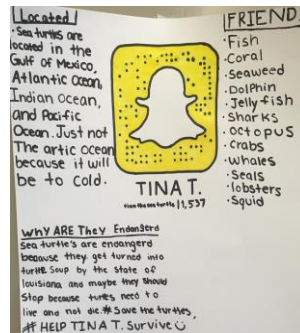 Located
·Sea turtles are
located in the
Gulf of Mexico,
Atlantic Ocean,
Indian Ocean,
and Pacific
Ocean. Just not
The artic Ocean
because it will
be to cold.
TINA T.
tina the sea turtle | 1,537
FRIEND
·Fish
·Coral
·Seaweed
·Dolphin
·Jelly fish
·Sharks
·Octopus
·Crabs
·whales
·Seals
·lobsters
·Squid
WHY ARE They Endangerd
Sea turtle's are endangerd
because they get turned into
turtle Soup by the state of
louisiana and maybe they should
Stop because turtles need to
live and not die. # Save the turtles,
# HELP TINA T. Survive